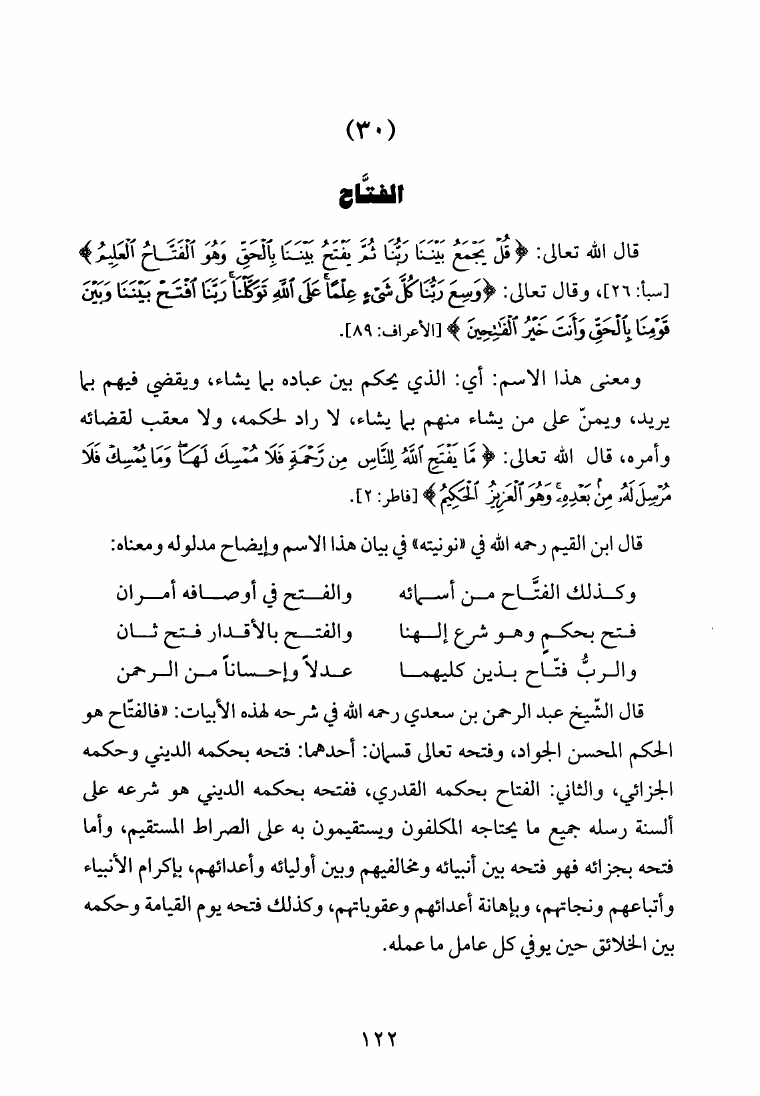 (٣٠)
الفتَّاح
قال الله تعالى: ﴿قُلْ يَجْمَعُ بَيْنَنَا رَبُّنَا ثُمَّ يَفْتَحُ بَيْنَنَا بِالْحَقِّ وَهُوَ الْفَتَّاحُ الْعَلِيمُ﴾
[سبأ: ٢٦]، وقال تعالى: ﴿وَسِعَ رَبُّنَا كُلَّ شَيْءٍ عِلْمًا عَلَى اللَّهِ تَوَكَّلْنَا رَبَّنَا افْتَحْ بَيْنَنَا وَبَيْنَ
قَوْمِنَا بِالْحَقِّ وَأَنتَ خَيْرُ الْفَاتِحِينَ﴾ [الأعراف: ٨٩].
ومعنى هذا الاسم: أي: الذي يحكم بين عباده بما يشاء، ويقضي فيهم بما
يريد، ويمنّ على من يشاء منهم بما يشاء، لا راد لحكمه، ولا معقب لقضائه
وأمره، قال الله تعالى: ﴿مَّا يَفْتَحِ اللَّهُ لِلنَّاسِ مِن رَّحْمَةٍ فَلَا مُمْسِكَ لَهَا وَمَا يُمْسِكْ فَلَا
مُرْسِلَ لَهُ مِنْ بَعْدِهِ وَهُوَ الْعَزِيزُ الْحَكِيمُ﴾ [فاطر: ٢].
قال ابن القيم رحمه الله في «نونيته» في بيان هذا الاسم وإيضاح مدلوله ومعناه:
وكـذلك الفتَّـاح مـن أسـمائه والفـتح في أوصـافه أمـران
فـتح بحكـم وهـو شرع إلـهنا والفتـح بالأقـدار فـتح ثـان
والـربُّ فتّـاح بـذين كليهمـا عـدلاً وإحـساناً مـن الـرحمن
قال الشّيخ عبد الرحمن بن سعدي رحمه الله في شرحه لهذه الأبيات: «فالفتّاح هو
الحكم المحسن الجواد، وفتحه تعالى قسمان: أحدهما: فتحه بحكمه الديني وحكمه
الجزائي، والثاني: الفتاح بحكمه القدري، ففتحه بحكمه الديني هو شرعه على
ألسنة رسله جميع ما يحتاجه المكلفون ويستقيمون به على الصراط المستقيم، وأما
فتحه بجزائه فهو فتحه بين أنبيائه ومخالفيهم وبين أوليائه وأعدائهم، بإكرام الأنبياء
وأتباعهم ونجاتهم، وبإهانة أعدائهم وعقوباتهم، وكذلك فتحه يوم القيامة وحكمه
بين الخلائق حين يوفي كل عامل ما عمله.
١٢٢